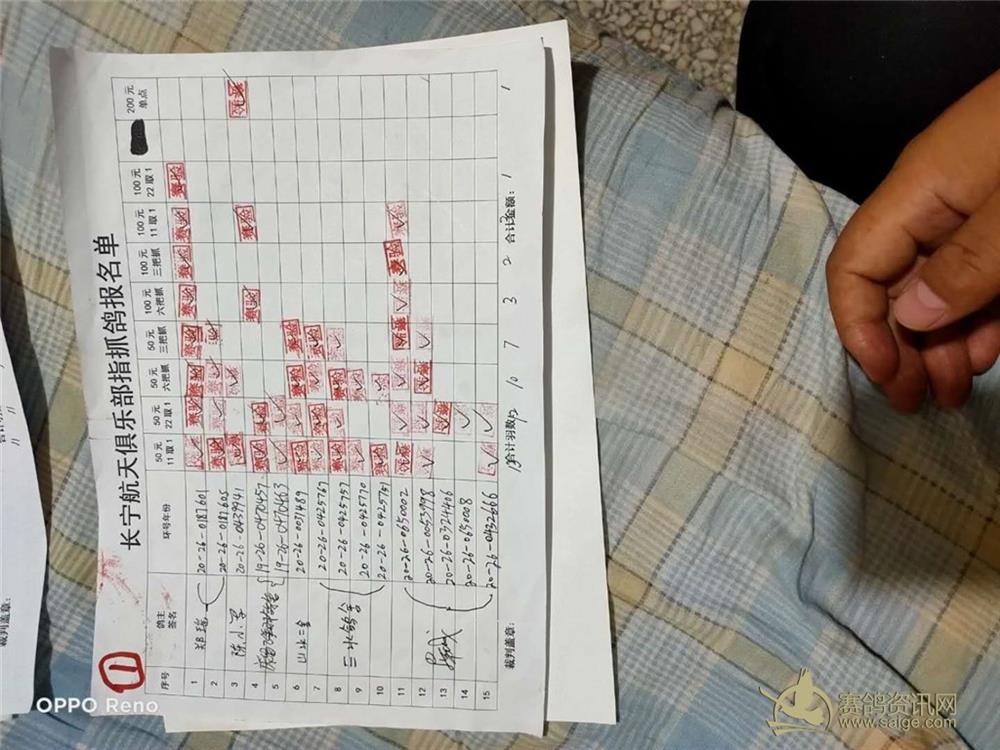 ①
长宁航天俱乐部指抓鸽报名单
序号 鸽主签名 环号年份 50元11取1 50元22取1 50元六把抓 50元三把抓 100元六把抓 100元三把抓 100元11取1 100元22取1 200元单点
1 郑瑞 20-26-0187601
2 20-26-0187605
3 陈小军 20-26-0439941
4 19-26-0470457
5 19-26-0470463
6 山水二舍 20-26-0071489
7 20-26-0425767
8 三水鸽舍 20-26-0425757
9 20-26-0425770
10 20-26-0425751
11 20-26-0650002
12 20-26-0053998
13 20-26-0324406
14 20-26-0650008
15 20-26-0432666
裁判盖章: 合计羽数 13 12 10 7 3 2 合计金额: 1 1
裁判盖章:
OPPO Reno
赛鸽资讯网
www.saige.com